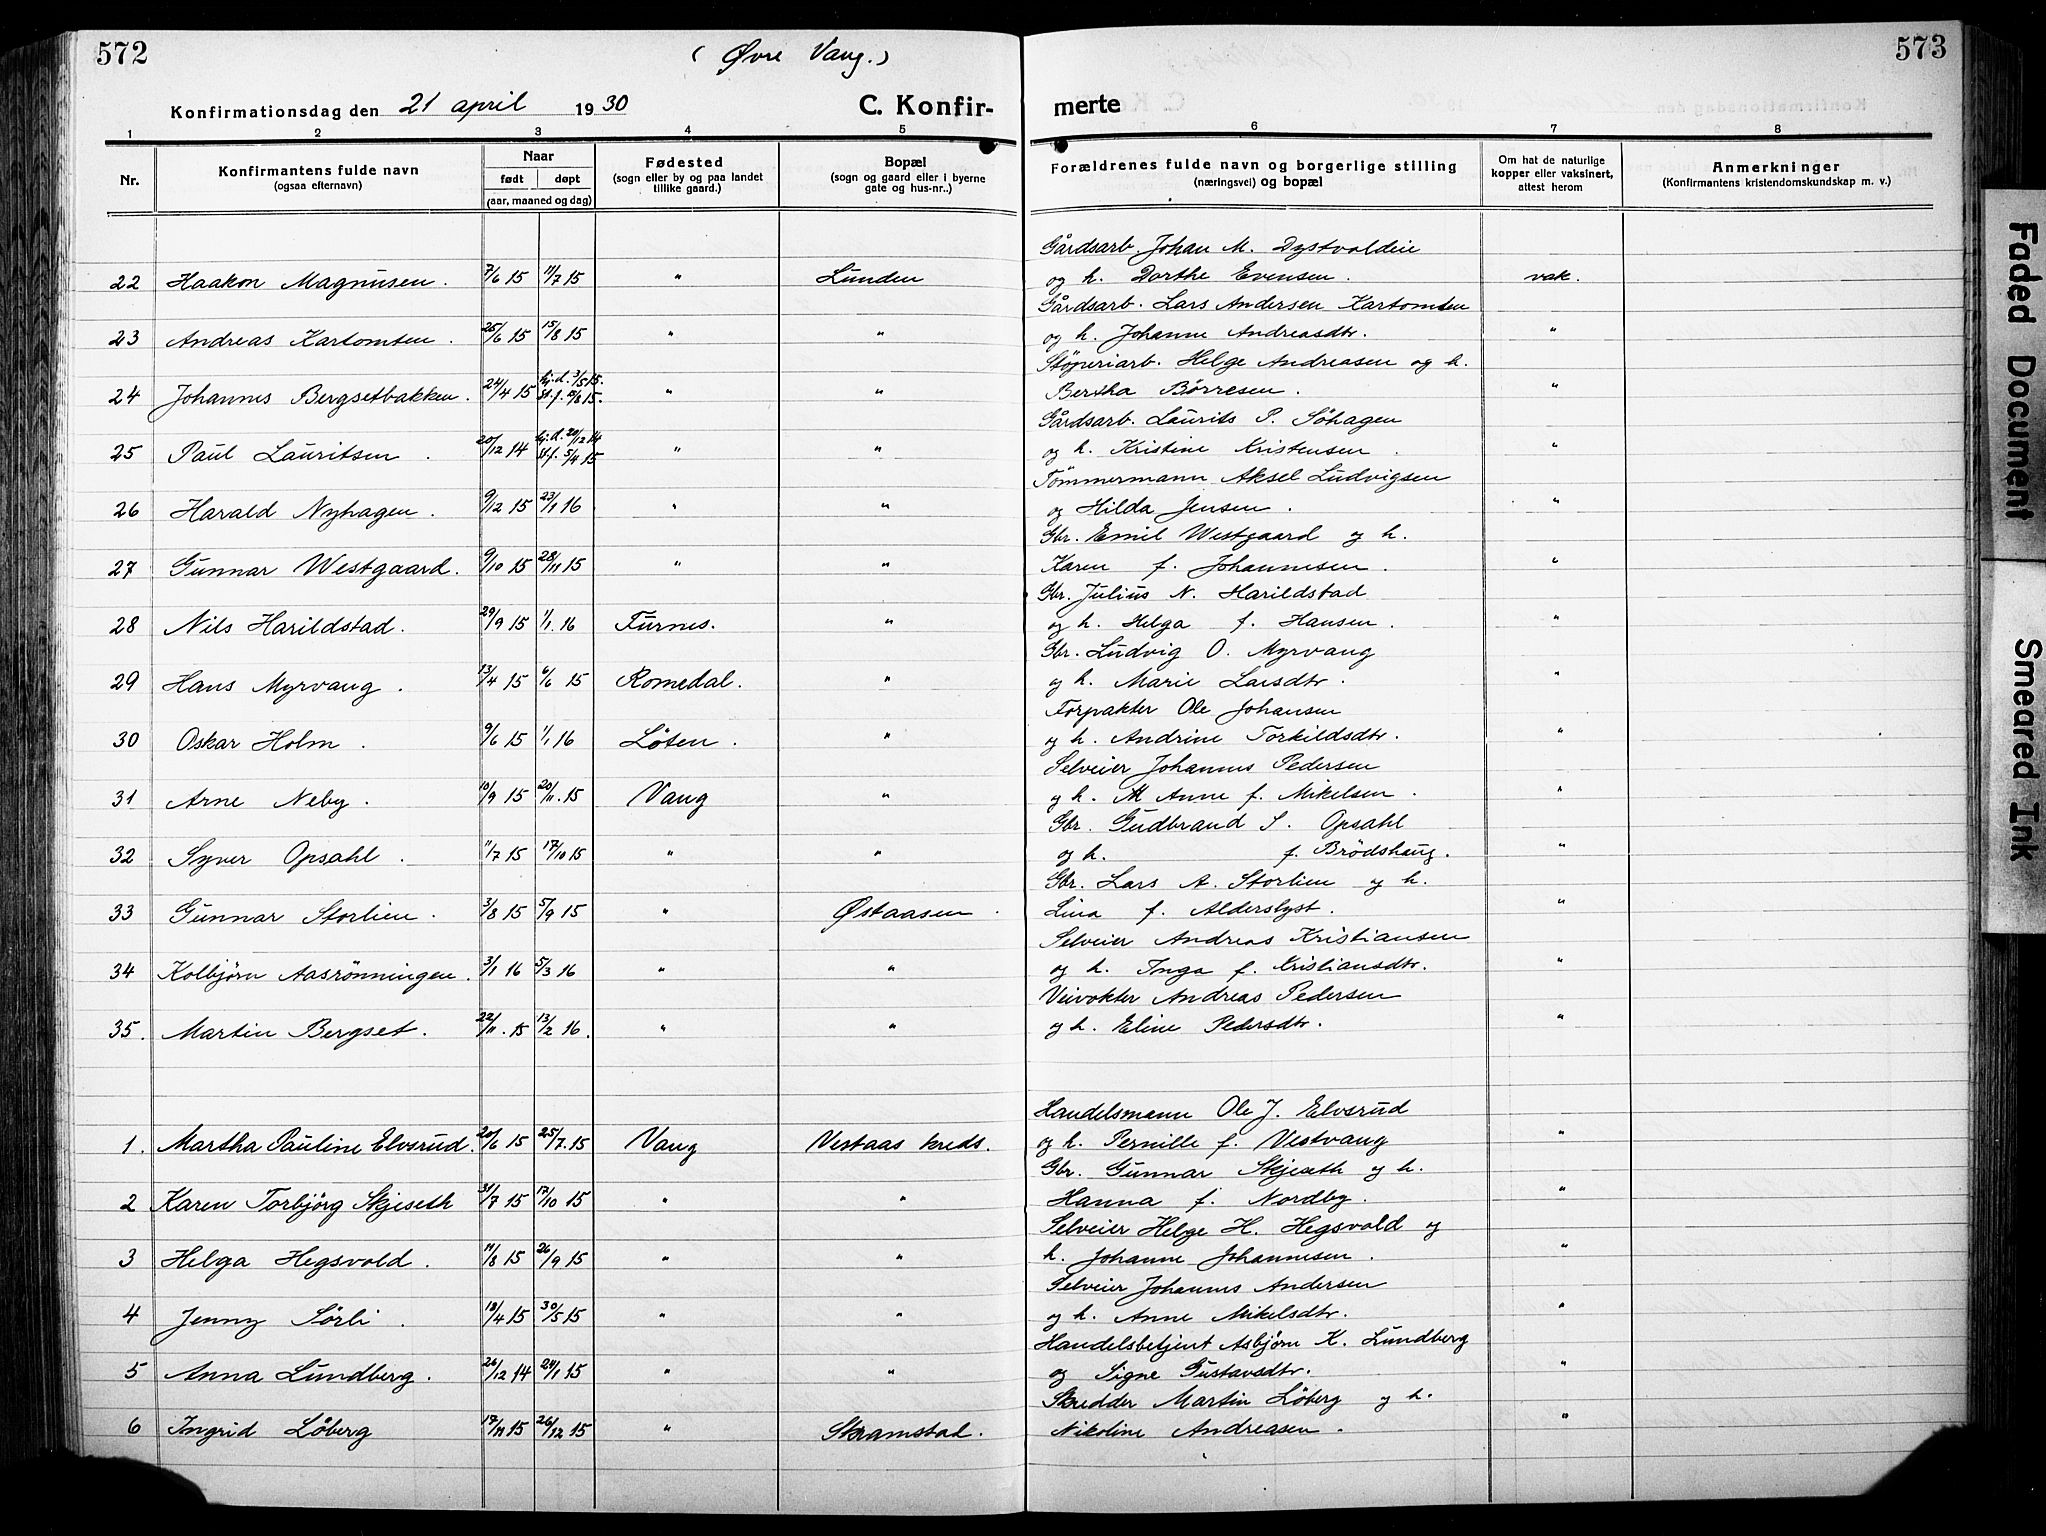 572
( Øvre Vang. )
573
Konfirmationsdag den 21 april 1930
C. Konfir- merte
1 2 3 4 5 6 7 8
Nr.
Konfirmantens fulde navn
(ogsaa efternavn)
Naar
født døpt
(aar, maaned og dag)
Fødested
(sogn eller by og paa landet
tillike gaard.)
Bopæl
(sogn og gaard eller i byerne
gate og hus-nr..)
Forældrenes fulde navn og borgerlige stilling
(næringsvei) og bopæl
Om hat de naturlige
kopper eller vaksinert,
attest herom
Anmerkninger
(Konfirmantens kristendomskundskap m. v.)
Gårdsarb. Johan M. Dystvoldeie
22 Haakon Magnusen. 7/6 15 11/7 15 " Lunden og h. Dorthe Evensen. vak.
Gårdsarb. Lars Andersen Kartomten
23 Andreas Kartomten. 25/6 15 15/8 15 " " og h. Johanne Andreasdtr. "
Støperiarb. Helge Andreasen og h.
24 Johannes Bergsetbakken. 24/4 15 hj.d. 3/5 15. st.f. 15. " " Bertha Börresen. "
Gårdsarb. Laurits P. Söhagen
25 Paul Lauritsen. 20/12 14 hj.d. 20/12 14 st.f. 5/4 15 " " og h. Kristine Kristensen. "
Tömmermann Aksel Ludvigsen
26 Harald Nyhagen. 9/12 15 23/1 16 " " og Hilda Jensen. "
Gbr. Emil Westgaard og h.
27 Gunnar Westgaard. 9/10 15 28/11 15 " " Karen f. Johannesen. "
Gbr. Julius N. Harildstad
28 Nils Harildstad. 29/9 15 1/1. 16 Furnes. " og h. Helga f. Hansen. "
Gbr. Ludvig O. Myrvang
29 Hans Myrvang. 13/4 15 6/6 15 Romedal. " og h. Marie Larsdtr. "
Forpakter Ole Johansen
30 Oskar Holm. 9/6 15 1/1 16 Löten. " og h. Andrine Torkildsdtr. "
Selveier Johannes Pedersen
31 Arne Neby. 10/9 15 20/11. 15 Vang " og h. Anne f. Mikelsen. "
Gbr. Gudbrand S. Opsahl
32 Syver Opsahl. 11/7 15 17/10 15 " " og h. f. Brödshaug. "
Gbr. Lars A. Storlien og h.
33 Gunnar Storlien. 3/8 15 5/9 15 " Østaasen. Lina f. Alderslyst. "
Selveier Andreas Kristiansen
34 Kolbjörn Aasrönningen. 3/1 16 5/3 16 " " og h. Inga f. Kristiansdtr. "
Veivokter Andreas Pedersen
35. Martin Bergset. 22/11. 15 13/2 16. " " og h. Eline Pedersdtr. "
Handelsmann Ole J. Elvsrud
1. Martha Pauline Elvsrud. 20/6 15 25/7. 15 Vang Vestaas kreds. og h. Pernille f. Vestvang "
Gbr. Gunnar Skjeseth og h.
2 Karen Torbjörg Skjeseth 31/7 15 17/10 15 " " Hanna f. Nordby. "
Selveier Helge H. Hegsvold og
3 Helga Hegsvold. 11/8 15 26/9 15 " " h. Johanne Johannesen. "
Selveier Johannes Andersen
4 Jenny Sörli. 18/4 15 30/5 15 " " og h. Anne Mikelsdtr. "
Handelsbetjent Asbjörn K. Lundberg
5 Anna Lundberg. 26/12 14 24/1 15 " " og Signe Gustavsdtr. "
Skredder Martin Löberg og h.
6 Ingrid Löberg 17/11 15 26/12 15 " Skramstad. Nikoline Andreasen. "
Faded Document
Smeared Ink